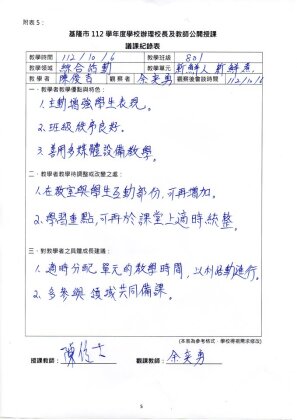 附表 5：
基隆市 112 學年度學校辦理校長及教師公開授課
議課紀錄表
教學時間 112/10/6 教學班級 801
教學領域 綜合活動 教學單元 新鮮人新鮮煮
教學者 陳俊吉 觀察者 余奕勇 觀察後會談時間 112/10/6
一、教學者教學優點與特色：
1. 主動增強學生表現。
2. 班級秩序良好。
3. 善用多媒體設備教學。
二、教學者教學待調整或改變之處：
1. 在教室與學生互動部份，可再增加。
2. 學習重點，可再於課堂上適時統整。
三、對教學者之具體成長建議：
1. 適時分配單元的教學時間，以利活動進行。
2. 多參與領域共同備課。
(本表為參考格式，學校得視需求修改)
授課教師： 觀課教師：余奕勇
5